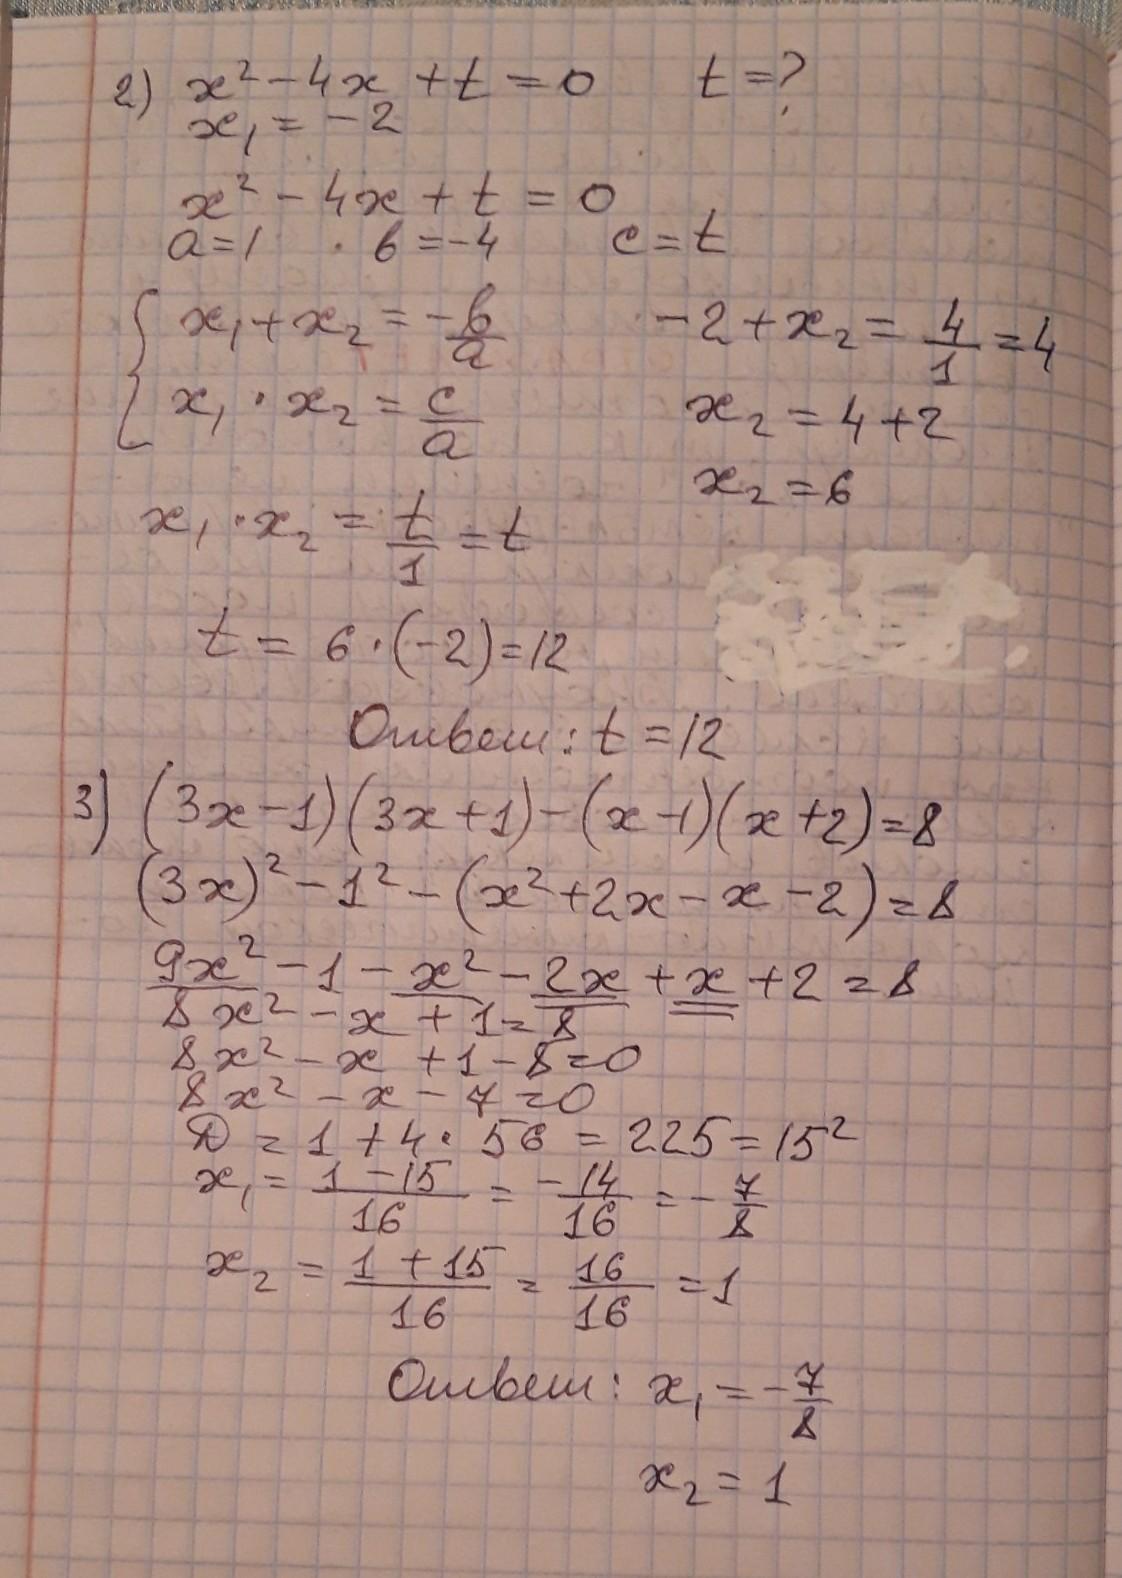 2) x² - 4x + t = 0 t = ?
x₁ = -2
x² - 4x + t = 0
a = 1 b = -4 c = t
x₁ + x₂ = -b/a -2 + x₂ = 4/1 = 4
x₁ · x₂ = c/a x₂ = 4 + 2
x₂ = 6
x₁ · x₂ = t/1 = t
t = 6 · (-2) = 12
Ответ: t = 12
3) (3x - 1)(3x + 1) - (x - 1)(x + 2) = 8
(3x)² - 1² - (x² + 2x - x - 2) = 8
9x² - 1 - x² - 2x + x + 2 = 8
8x² - x + 1 = 8
8x² - x + 1 - 8 = 0
8x² - x - 7 = 0
D = 1 + 4 · 56 = 225 = 15²
x₁ = (1 - 15)/16 = -14/16 = -7/8
x₂ = (1 + 15)/16 = 16/16 = 1
Ответ: x₁ = -7/8
x₂ = 1